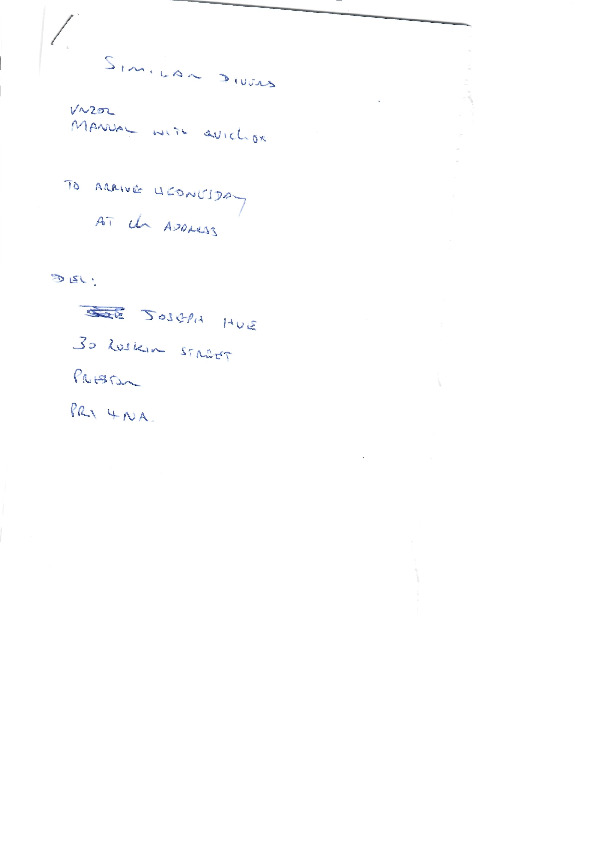 SIMILAR DIVERS
VN202
MANUAL WITH
TO ARRIVE WEDNESDAY
AT ADDRESS
DEL:
JOSEPH HUE
30 RUSKIN STREET
PRESTON
PR1 4NA